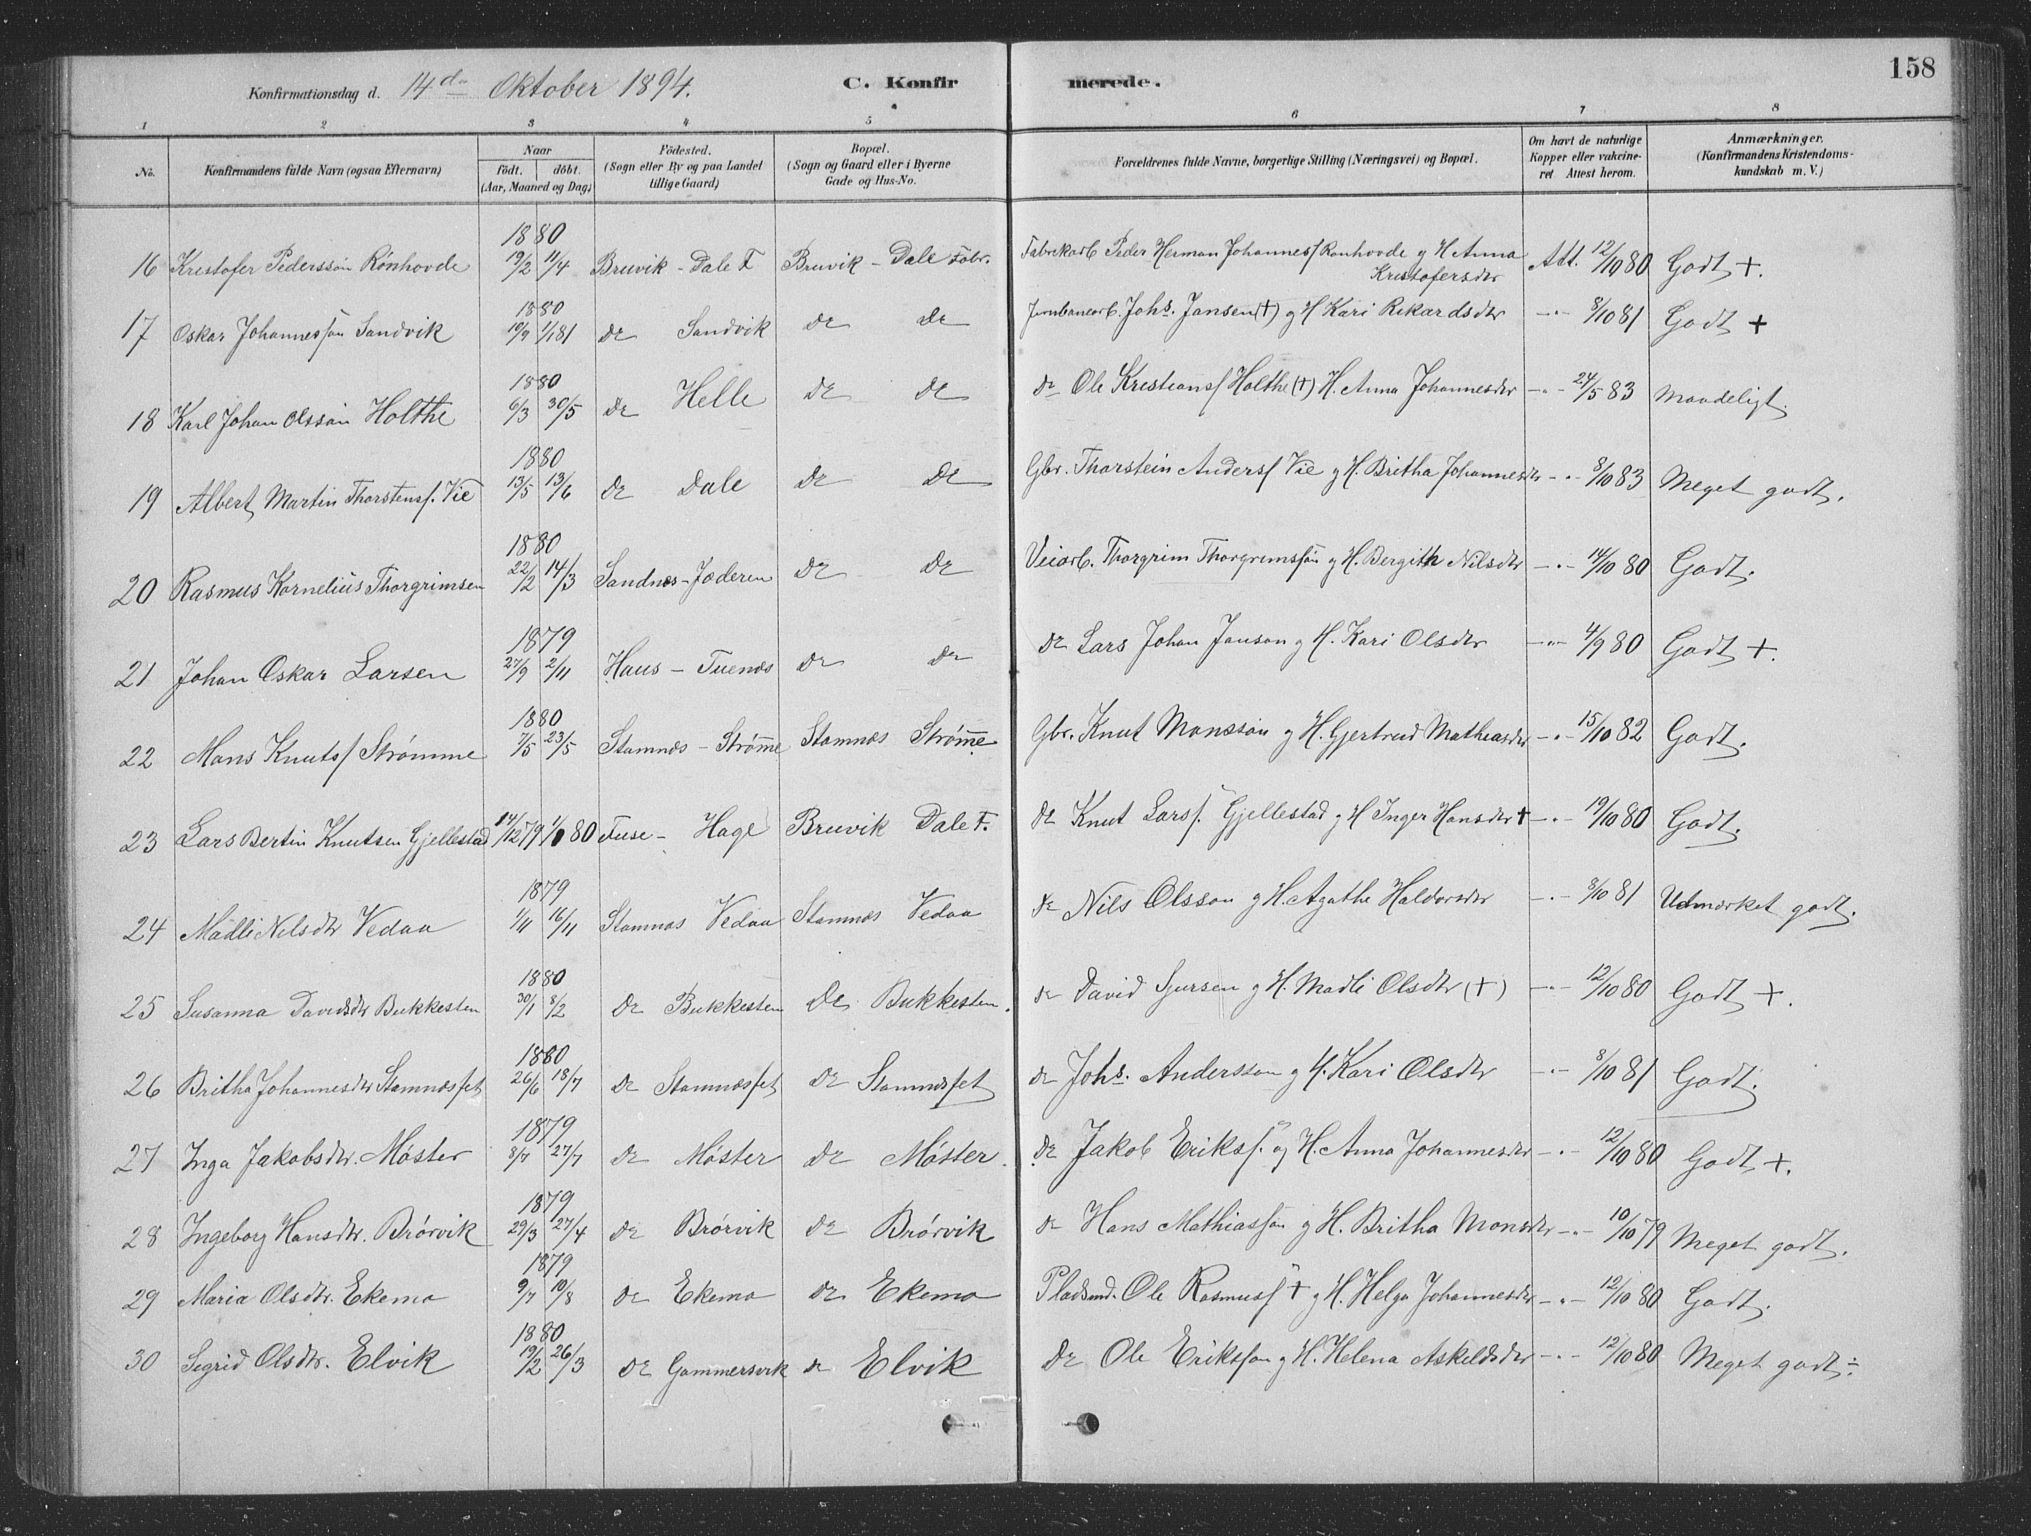 158
Konfirmationsdag d. 14de Oktober 1894. C. Konfirmerede.
1 2 3 4 5 6 7 8
No. Konfirmandens fulde Navn (ogsaa Efternavn) Naar födt. döbt. (Aar, Maaned og Dag) Födested. (Sogn eller By og paa Landet tillige Gaard) Bopæl. (Sogn og Gaard eller i Byerne Gade og Hus-No. Forældrenes fulde Navne, borgerlige Stilling (Næringsvei) og Bopæl. Om havt de naturlige Kopper eller vakcineret Attest herom. Anmærkninger. (Konfirmandens Kristendomskundskab m. V.)
16 Kristofer Pederssön Rönhovde 1880 19/2 11/4 Bruvik - Dale F Bruvik - Dale Fabr. Fabrikarb. Peder Herman Johannesf Rønhovde g H Anna Kristofersdtr Att. 12/10 80 Godt +.
17 Oskar Johannessön Sandvik 1880 19/9 1/1 81 de Sandvik de de Jernbanearb. Johs. Jansen (+) g H Kari Rikardsdtr -"- 8/10 81 Godt +
18 Karl Johan Olssön Holthe 1880 6/3 30/5 de Helle de de de Ole Kristiansf Holthe (+) H. Anna Johannesdtr -"- 24/5 83 Maadeligt.
19 Albert Martin Thorstensf. Vie 1880 13/5 13/6 de Dale de de Gbr. Thorstein Andersf Vie g H. Britha Johannesdtr -"- 8/10 83 Meget godt.
20 Rasmus Kornelius Thorgrimsen 1880 22/2 14/3 Sandnes - Jæderen de de Veiarb. Thorgrim Thorgrimssön g H. Bergith Nilsdtr -"- 14/10 80 Godt.
21 Johan Oskar Larsen 1879 27/9 2/11 Haus - Tuenæs de de de Lars Johan Janson g H. Kari Olsdtr -"- 4/9 80 Godt +.
22 Mons Knutsf Strømme 1880 7/5 23/5 Stamnæs - Strømme Stamnæs Strømme Gbr. Knut Monssön g H. Gjertrud Mathiasdtr -"- 15/10 82 Godt.
23 Lars Bertin Knutsen Gjellestad 14/12 79 80 Fuse - Hage Bruvik Dale F. de Knut Larsf. Gjellestad g H Inger Hansdtr + -"- 19/10 80 Godt.
24 Madli Nilsdtr Vedaa 1879 1/11 16/11 Stamnæs Vedaa Stamnæs Vedaa de Nils Olsson g H. Agathe Haldorsdtr -"- 8/10 81 Udmærket godt.
25 Susanna Davidsdtr Bukkesten 1880 30/1 8/2 de Bukkesten de Bukkesten. de David Sjursen g H. Madli Olsdtr (+) -"- 12/10 80 Godt +.
26 Britha Johannesdtr Stamnæsfet 1880 26/6 18/7 de Stamnæsfet de Stamnæsfet de Johs. Andersson g H. Kari Olsdtr -"- 8/10 81 Godt.
27 Inga Jakobsdtr. Møster 1879 8/7 27/7 de Møster de Møster. de Jakob Eriksf. og H. Anna Johannesdtr -"- 12/10 80 Godt +.
28 Ingeborg Hansdtr. Brörvik 1879 29/3 27/4 de Brörvik de Brörvik de Hans Mathiassön g H. Britha Monsdtr -"- 10/10 79 Meget godt.
29 Maria Olsdtr. Ekemo 1879 9/7 10/8 de Ekemo de Ekemo Pladsmd. Ole Rasmusf + g H. Helga Johannesdtr -"- 12/10 80 Godt.
30 Sigrid Olsdtr. Elvik 1880 19/2 26/3 de Gammersvik de Elvik de Ole Erikssön g H. Helena Askeldsdtr -"- 12/10 80 Meget godt ÷